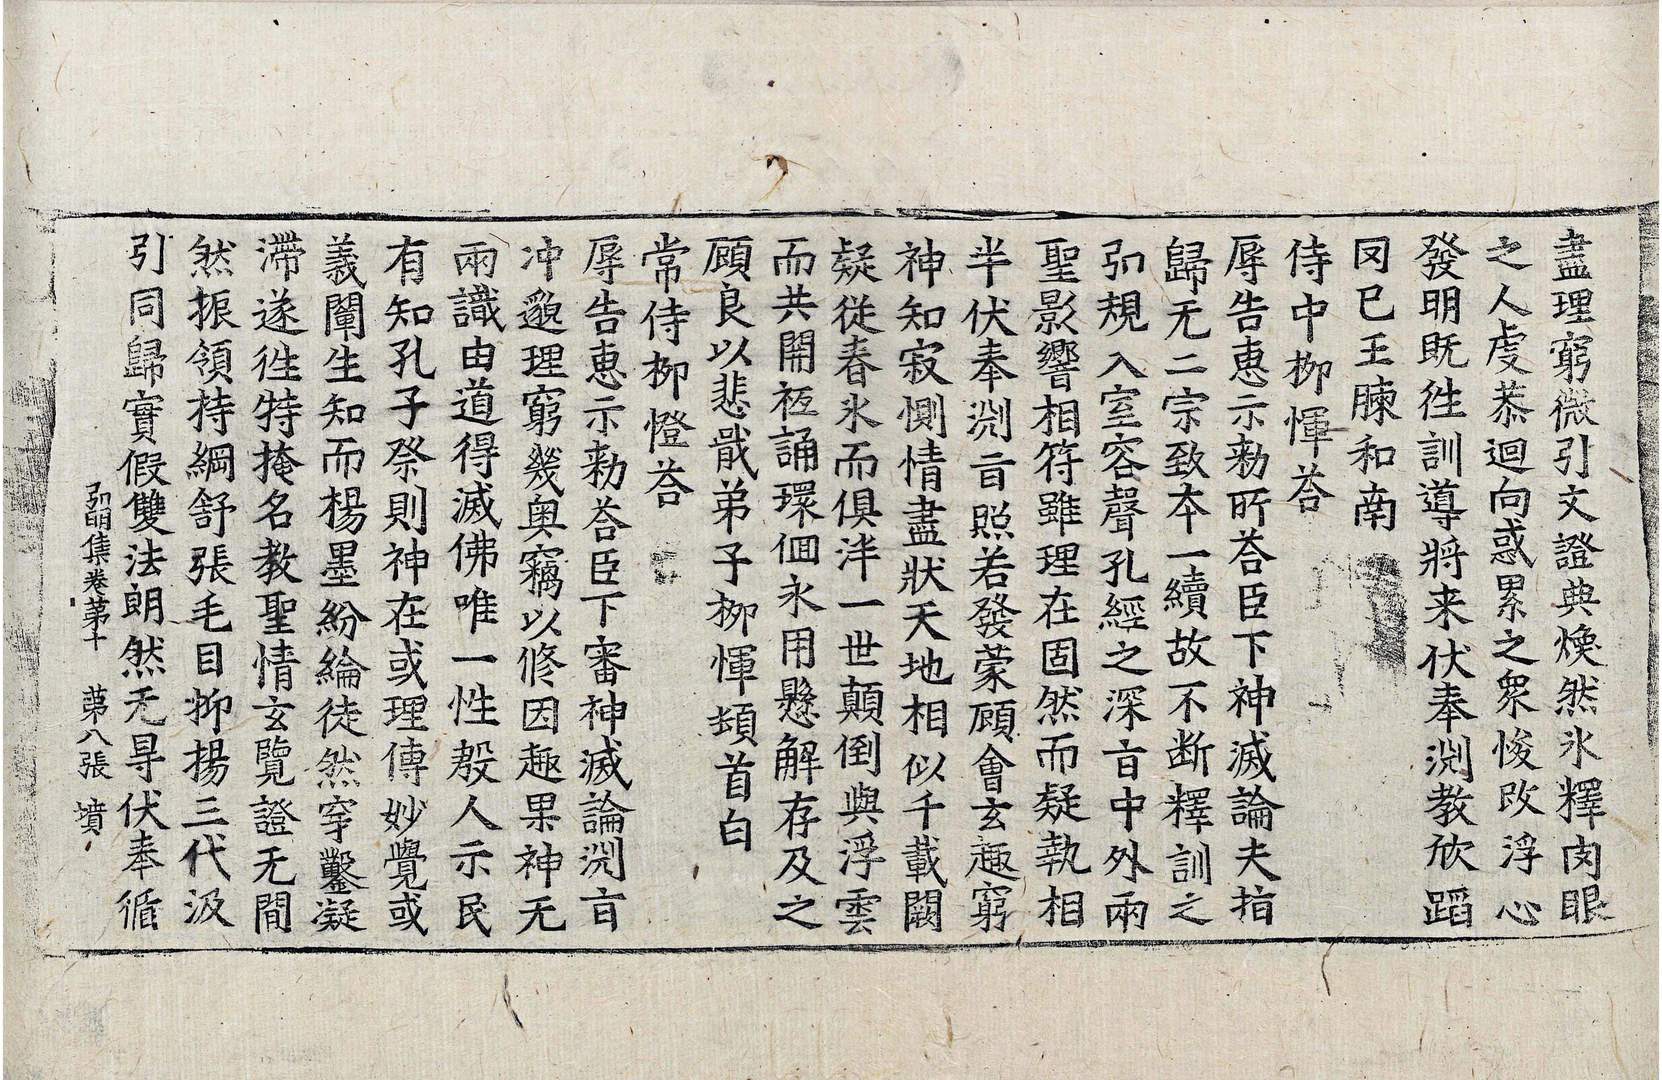 盡理窮微引文證典煥然氷釋肉眼
之人虔恭迴向惑累之衆悛改浮心
發明既徃訓導將来伏奉渕教欣蹈
罔已王暕和南
侍中栁惲荅
辱告惠示勑所荅臣下神滅論夫指
歸无二宗致本一續故不断釋訓之
弘規入室容聲孔經之深㫖中外兩
聖影響相符雖理在固然而疑執相
半伏奉渕㫖照若發蒙顧會玄趣窮
神知寂惻情盡狀天地相似千載闕
疑從春氷而俱泮一世顛倒與浮雲
而共開袛誦環佪永用懸解存及之
顧良以悲戢弟子栁惲頓首白
常侍栁憕荅
辱告惠示勑荅臣下審神滅論渕㫖
冲邈理窮幾奥竊以修因趣果神无
兩識由道得滅佛唯一性殷人示民
有知孔子祭則神在或理傳妙覺或
義闡生知而楊墨紛綸徒然穿鑿凝
滯遂徃特掩名教聖情玄覽證无間
然振領持綱舒張毛目抑揚三代汲
引同歸實假雙法朗然无㝵伏奉循
弘明集卷苐十　苐八張　墳